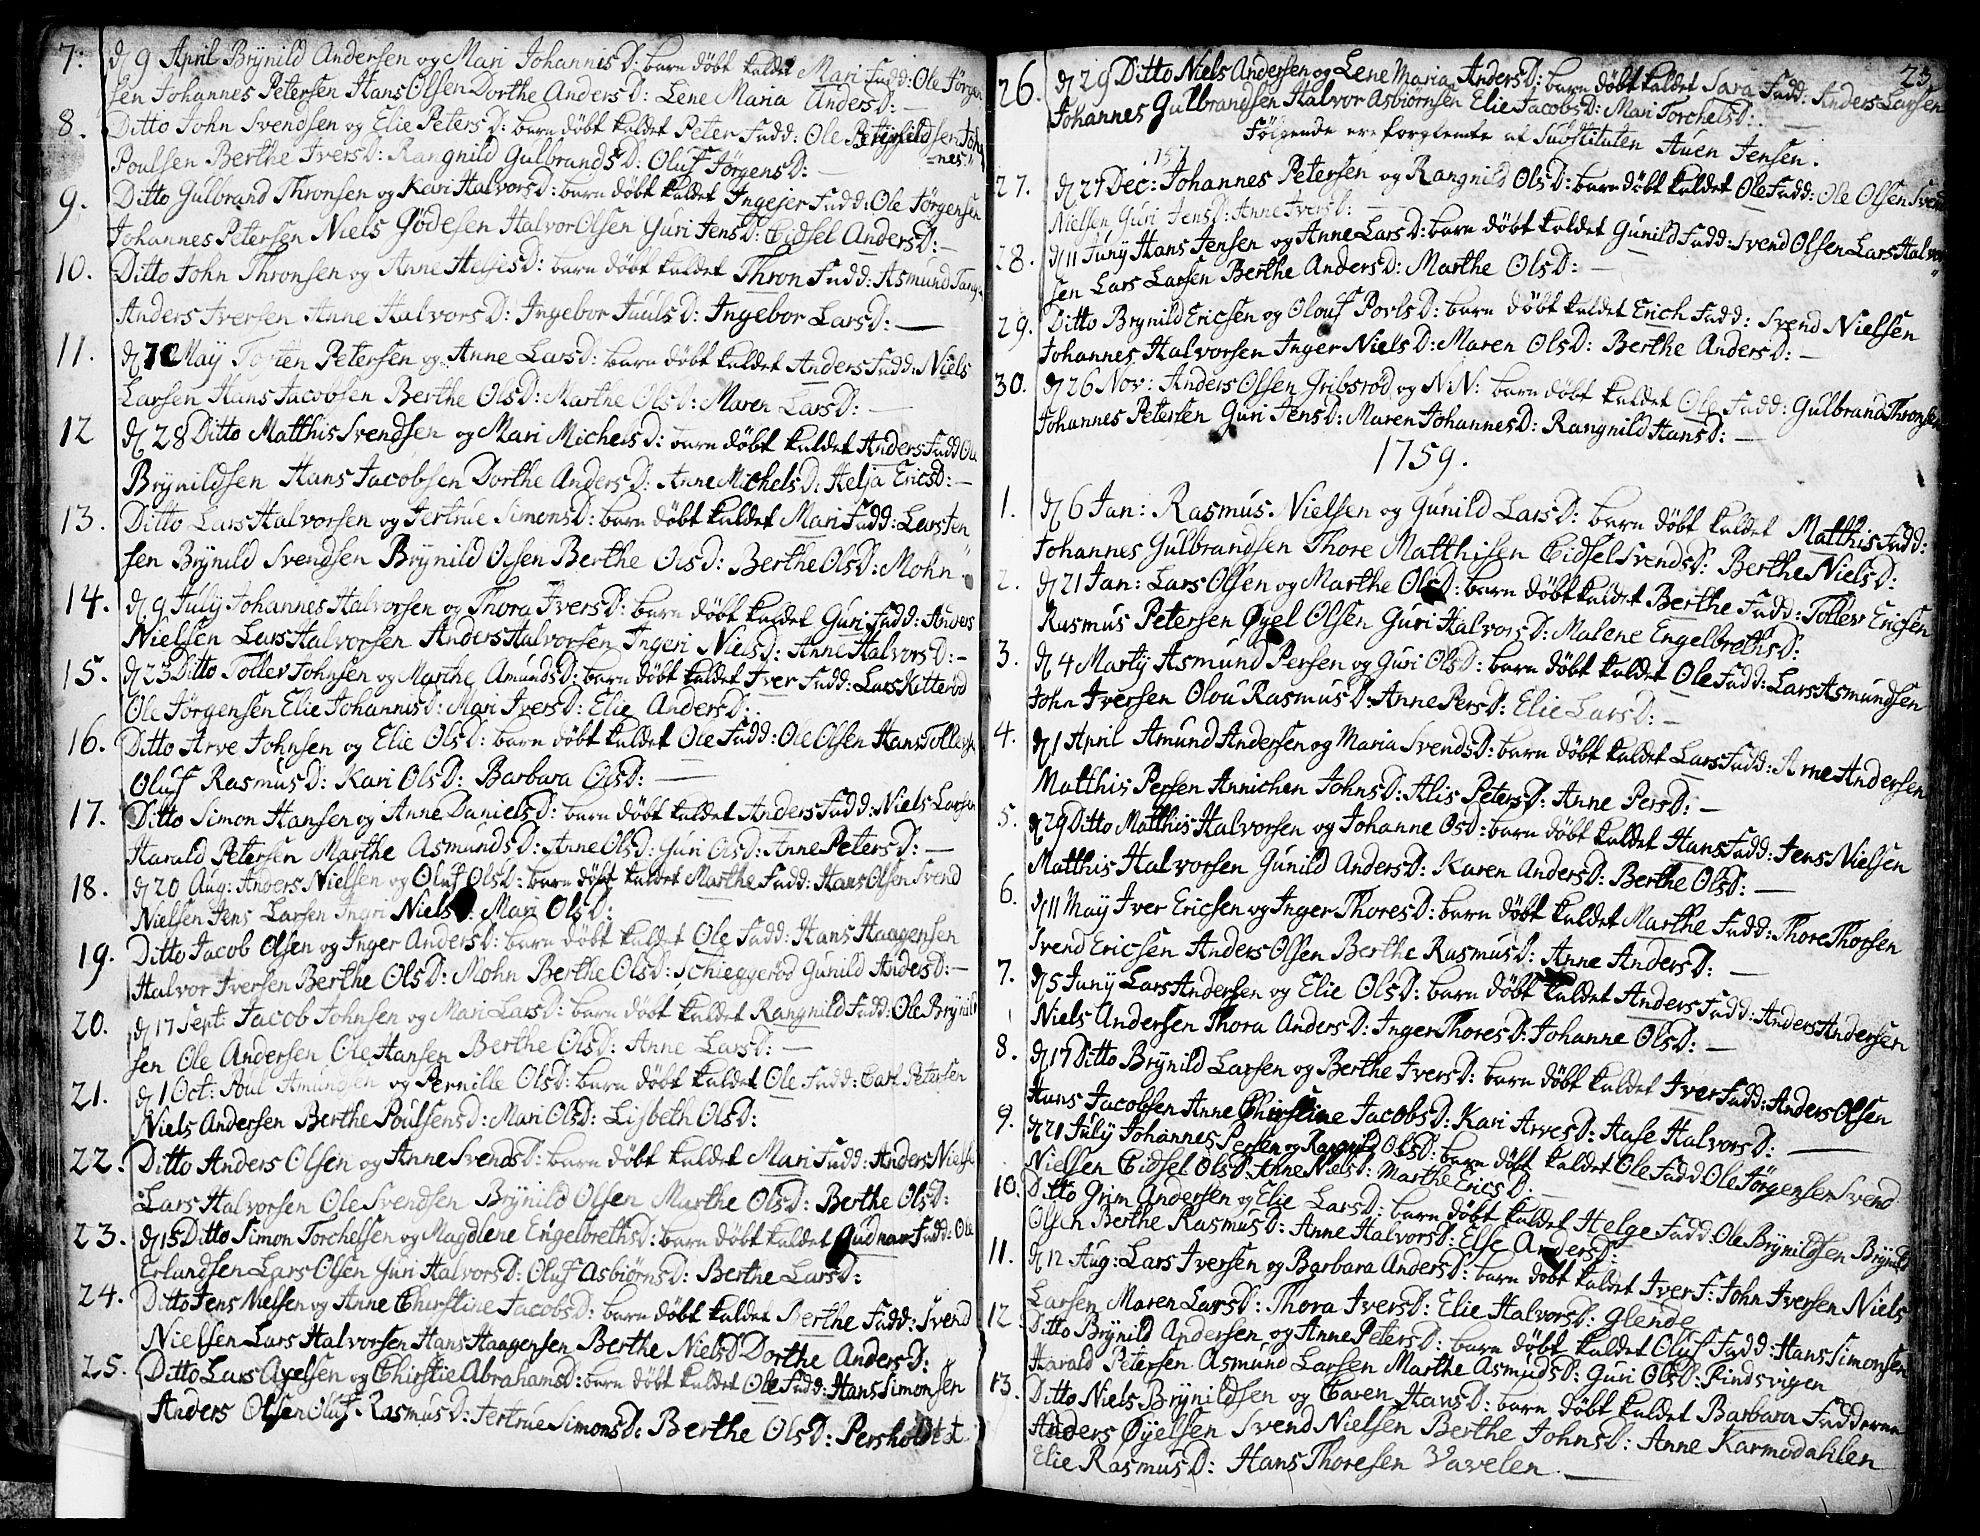 7. d 9 April Brÿnild Andersen og Mari JohannisD: barn döbt kaldet Mari Fadd: Ole Jörgen
sen Johannes Petersen Hans Olsen Dorthe AndersD: Lene Maria AndersD:
8. Ditto John Svendsen og Elie PetersD: barn döbt kaldet Peter Fadd: Ole Johan
Poulsen Berthe IversD: Rangnild GulbrandsD: Oluf JörgensD:
9. Ditto Gulbrand Thronsen og Kari HalvorsD: barn döbt kaldet Ingejer Fadd: Ole Jörgensen
Johannes Petersen Niels Gödesen Halvor Olsen Guri JensD: Eidsel AndersD:
10. Ditto John Thronsen og Anne HelgisD: barn döbt kaldet Thron Fadd: Asmund Tang
Anders Iversen Anne HalvorsD: Ingebor JuulsD: Ingebor LarsD:
11. d 70 Maÿ Petersen og Anne LarsD: barn döbt kaldet Anders Fadd: Niels
Larsen Hans Jacobsen Berthe OlsD: Marthe OlsD: Maren LarsD:
12 d 28 Ditto Matthis Svendsen og Mari MichelsD: barn döbt kaldet Anders Fadd Ole
Brÿnildsen Hans Jacobsen Dorthe AndersD: Anne MichelsD: Helja EricsD:
13. Ditto Lars Halvorsen og Jertrue SimonsD: barn döbt kaldet Mari Fadd: Lars Jen
sen Brÿnild Svendsen Brÿnild Olsen Berthe OlsD: Berthe OlsD: Mohn
14. d 9 Julÿ Johannes Halvorsen og Thora IversD: barn döbt kaldet Guri Fadd: Anders
Nielsen Lars Halvorsen Anders Halvorsen Ingeri NielsD: Anne HalvorsD:
15. d 23 Ditto Tollev Johnsen og Marthe AmundsD: barn döbt kaldet Iver Fadd: Lars Ketteröd
Ole Jörgensen Elie JohannisD: Mari IversD: Elie AndersD:
16. Ditto Arve Johnsen og Elie OlsD: barn döbt kaldet Ole Fadd: Ole Olsen Hans Tollevs
Oluf RasmusD: Kari OlsD: Barbara OlsD:
17. Ditto Simon Hansen og Anne DanielsD: barn döbt kaldet Anders Fadd: Niels Larsen
Harald Petersen Marthe AsmundsD: Anne OlsD: Guri OlsD: Anne PetersD:
18. d 20 Aug: Anders Nielsen og Oluf OlsD: barn döbt kaldet Marthe Fadd: Hans Olsen Svend
Nielsen Jens Larsen Ingri NielsD: Mari OlsD:
19. Ditto Jacob Olsen og Inger AndersD: barn döbt kaldet Ole Fadd: Hans Haagensen
Halvor Iversen Berthe OlsD: Mohn Berthe OlsD: Schieggeröd Gunild AndersD:
20. d 17 Sept: Jacob Johnsen og Mari LarsD: barn döbt kaldet Rangnild Fadd: Ole Brÿnild
sen Ole Andersen Ole Hansen Berthe OlsD: Anne LarsD:
21. d 1 Oct: Poul Amundsen og Pernille OlsD: barn döbt kaldet Ole Fadd: Carl Petersen
Niels Andersen Berthe PoulsensD: Mari OlsD: Lisbeth OlsD:
22. Ditto Anders Olsen og Anne SvendsD: barn döbt kaldet Mari Fadd: Anders Nielse
Lars Halvorsen Ole Svendsen Brÿnild Olsen Marthe OlsD: Berthe OlsD:
23. d 15 Ditto Simon Torchelsen og Magdlene EngelbrethsD: barn döbt kaldet Gudnar Fadd: Ole
Erlundsen Lars Olsen Guri HalvorsD: Oluf AsbiörnsD: Berthe LarsD:
24. Ditto Jens Nielsen og Anne Chirstine JacobsD: barn döbt kaldet Berthe Fadd: Svend
Nielsen Lars Halvorsen Hans Haagensen Berthe NielsD Dorthe AndersD:
25. Ditto Lars Axelsen og Chirstie AbrahamsD: barn döbt kaldet Ole Fadd: Hans Simonsen
Anders Olsen Oluf RasmusD: Jertrue SimonsD: Berthe OlsD: Persholdtet
23
26. d 29 Ditto Niels Andersen og Lene Maria AndersD: barn döbt kaldet Sara Fadd: Anders Larsen
Johannes Gulbrandsen Halvor Asbiörnsen Elie JacobsD: Mari TorchelsD:
Fölgende ere forglemte af Substituten Auen Jensen.
157
27. d 27 Dec: Johannes Petersen og Rangnild OlsD: barn döbt kaldet Ole Fadd: Ole Olsen Svend
Nielsen Guri JensD: Anne IversD:
28. d 11 Junÿ Hans Jensen og Anne LarsD: barn döbt kaldet Gunild Fadd: Svend Olsen Lars Halvor
sen Lars Larsen Berthe AndersD: Marthe OlsD:
29. Ditto Brÿnild Ericsen og Olouf PovlsD: barn döbt kaldet Erich Fadd: Svend Nielsen
Johannes Halvorsen Inger NielsD: Maren OlsD: Berthe AndersD:
30. d 26 Nov: Anders Olsen Gribsröd og N:N: barn döbt kaldet Ole Fadd: Gulbrand Thronsen
Johannes Petersen Guri JensD: Maren JohannesD: Rangnild HansD:
1759.
1. d 6 Jan: Rasmus Nielsen og Gunild LarsD: barn döbt kaldet Matthis Fadd:
Johannes Gulbrandsen Thore Matthisen Eidsel SvendsD: Berthe NielsD:
2. d 21 Jan: Lars Olsen og Marthe OlsD: barn döbt kaldet Berthe Fadd: Tollev Ericsen
Rasmus Petersen Øyel Olsen Guri HalvorsD: Malene EngelbrethsD:
3. d 4 Martÿ Asmund Persen og Guri OlsD: barn döbt kaldet Ole Fadd: Lars Asmundsen
John Iversen Olou RasmusD: Anne PersD: Elie LarsD:
4. d 1 April Amund Andersen og Maria SvendsD: barn döbt kaldet Lars Fadd: Arne Andersen
Matthis Persen Annichen JohnsD: Alis PetersD: Anne PersD:
5. d 29 Ditto Matthis Halvorsen og Johanne OlsD: barn döbt kaldet Hans Fadd: Jens Nielsen
Matthis Halvorsen Gunild AndersD: Karen AndersD: Berthe OlsD:
6. d 11 Maÿ Iver Ericsen og Inger ThoresD: barn döbt kaldet Marthe Fadd: Thore Thorsen
Svend Ericsen Anders Olsen Berthe RasmusD: Anne AndersD:
7. d 5 Junÿ Lars Andersen og Elie OlsD: barn döbt kaldet Anders Fadd: Anders Andersen
Niels Andersen Thora AndersD: Inger ThoresD: Johanne OlsD:
8. d 17 Ditto Brÿnild Larsen og Berthe IversD: barn döbt kaldet Iver Fadd: Anders Olsen
Hans Jacobsen Anne Chirstine JacobsD: Kari ArvesD: Aase HalvorsD:
9. d 21 Julÿ Johannes Persen og Rangnild OlsD: barn döbt kaldet Ole Fadd Ole Jörgensen Svend
Nielsen Eidsel OlsD: Anne NielsD: Marthe EricsD:
10. Ditto Grim Andersen og Elie LarsD: barn döbt kaldet Helge Fadd: Ole Brÿnildsen Brÿnild
Olsen Berthe RasmusD: Anne HalvorsD: Else AndersD:
11. d 12 Aug: Lars Iversen og Barbara AndersD: barn döbt kaldet Iver F: John Iversen Niels
Larsen Maren LarsD: Thora IversD: Elie HalvorsD: Glende
12. Ditto Brÿnild Andersen og Anne PetersD: barn döbt kaldet Oluf Fadd: Hans Simonsen
Harald Petersen Asmund Larsen Marthe AsmudsD: Guri OlsD: Pindsvigen
13. Ditto Niels Brÿnildsen og Caren HansD: barn döbt kaldet Barbara Fadderne
Anders Øyelsen Svend Nielsen Berthe JohnsD: Anne Karmodahlen
Elie RasmusD: Hans Thoresen Vavelen